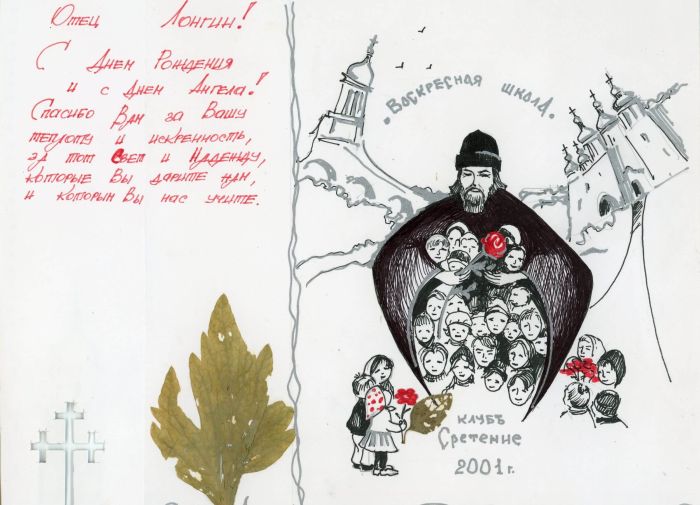 Отец Лонгин!
С Днем Рождения
и с Днем Ангела!
Спасибо Вам за Вашу
теплоту и искренность,
за тот Свет и Надежду,
которые Вы дарите нам,
и которым Вы нас учите.
"Воскресная школа"
клубъ
Сретение
2001 г.